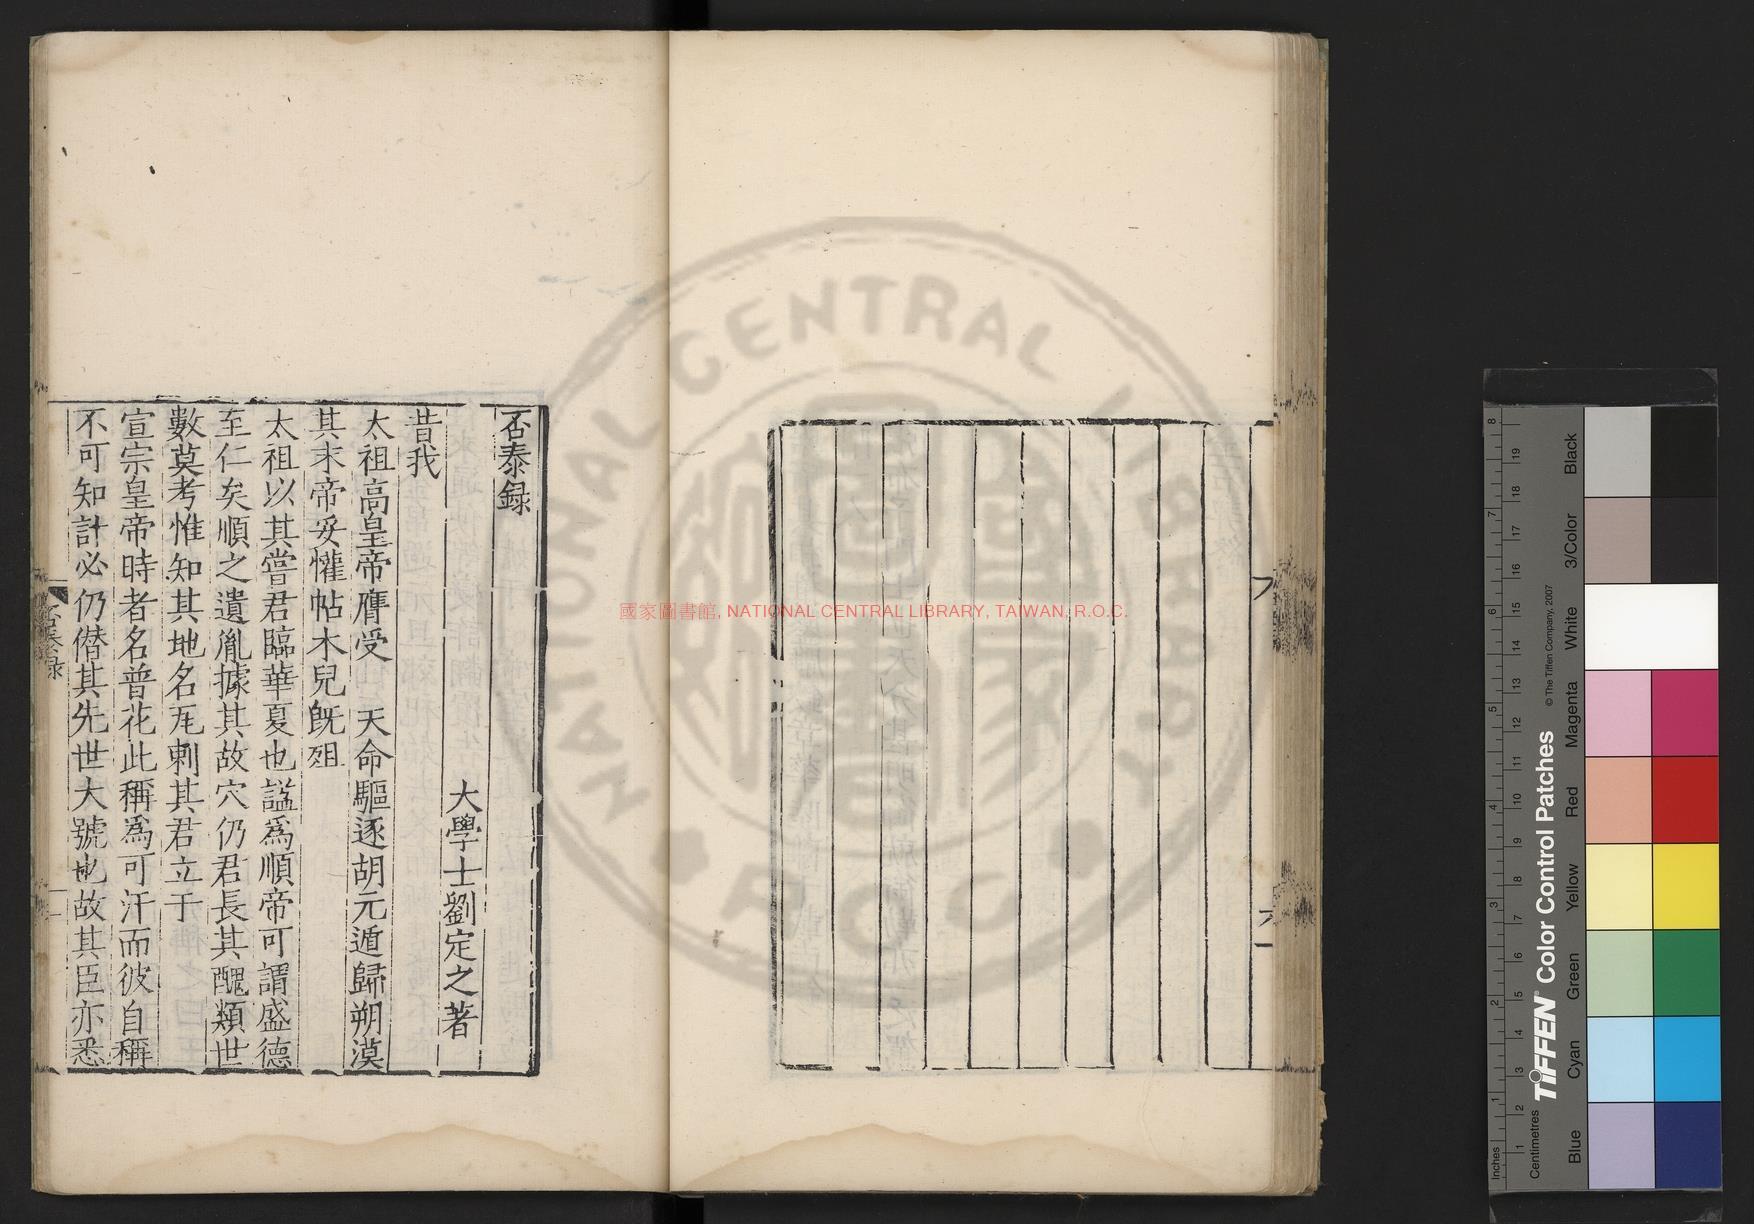 否泰録
大學士劉定之著
昔我
太祖高皇帝膺受　天命驅逐胡元遁歸朔漠
其末帝妥懽帖木兒旣殂
太祖以其嘗君臨華夏也諡爲順帝可謂盛德
至仁矣順之遺胤據其故穴仍君長其醜類世
數莫考惟知其地名瓦剌其君立于
宣宗皇帝時者名普花此稱爲可汗而彼自稱
不可知計必仍僣其先世大號也故其臣亦悉
否泰録
一
國家圖書館, NATIONAL CENTRAL LIBRARY, TAIWAN, R.O.C.
NATIONAL CENTRAL LIBRARY
R.O.C.
Inches
Centimetres
TIFFEN® Color Control Patches
© The Tiffen Company, 2007
Blue
Cyan
Green
Yellow
Red
Magenta
White
3/Color
Black